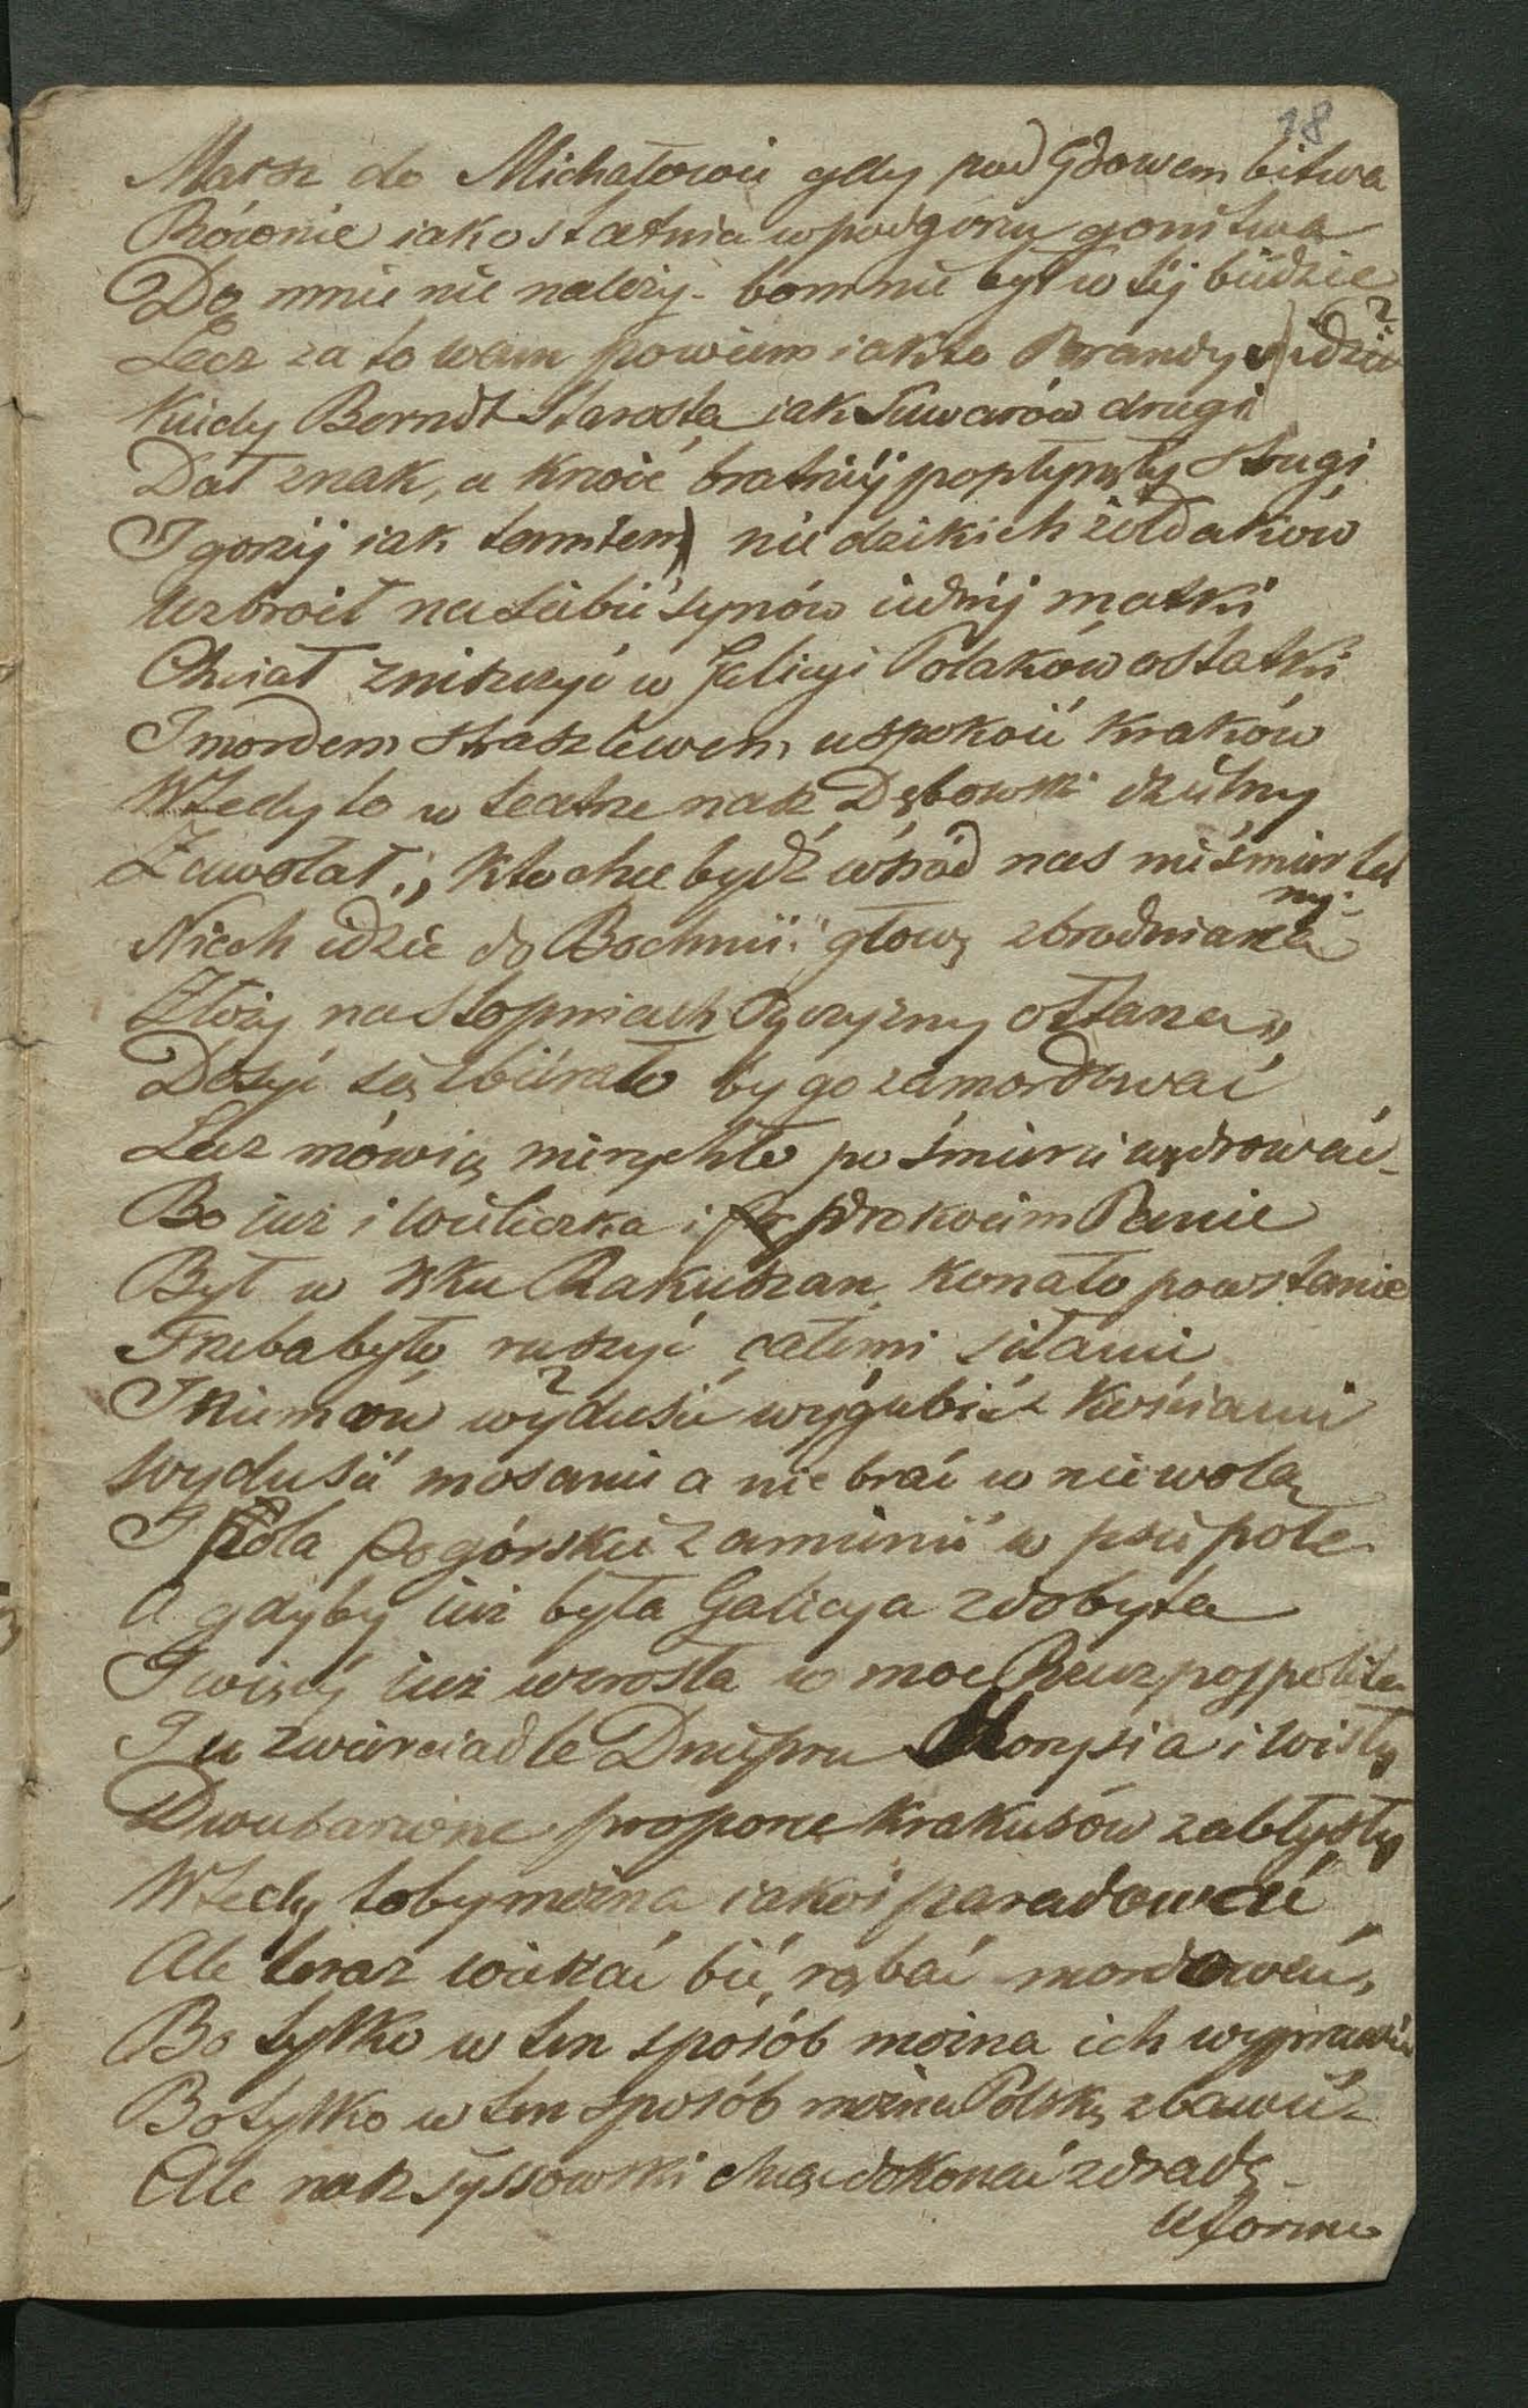 18
Marsz do Michałowic gdy pod Gdowem bitwa
Równie iak ostatnia w podgorzu gonitwa
Do mnie nie należy - bom nie był w tej biédzie
Lecz za to wam powiem iak to Prawdy
Kiedy Berndt Starosta iak Suwarów drugi
Dał znak, a krwie bratniéj popłynęły strugi
I gorzéj iak tamten) nie dzikich żołdaków
Uzbroił na siebie synów iednéj matki
Chciał zniszczyć w Galicyi Polaków ostatki
I mordem straszliwem uspokoić Kraków
Wtedy to w teatrze nasz Dębowski dzielny
Zawołał: „Kto chce bydź wśród nas nieśmiertel
ny-
Niech idzie do Bochnii: głowę zbrodniarza
Złoży na stopniach Oyczyzny ołtarza„
Dosyć się zbierało by go zamordować
Lecz mówią nierychło po śmierci wędrować -
Bo iuż i Wieliczka i Prokocim Panie
Był w ręku Rakuszan, konało powstanie
Trzeba było ruszyć całemi siłami
I Niemców wydusić wygubić kościami
wydusić mospanie a nie brać w niewolę
I Pola Pogórskie zamienić w psie pole
A gdyby iuż była Galicya zdobyta
I więcéj iuż wzrosła w moc Rzeczpospolita
I w zwierciadle Dniepru i Wisły
Dwubarwne proporce Krakusów zabłysły
Wtedy toby można iakoś paradować
Ale teraz wieszać bić, rąbać mordować,
Bo tylko w ten sposób można ich wyprawić
Bo tylko w ten sposób można Polskę zbawić -
Ale nasz Tyssowski chcąc dokonać zdradę -